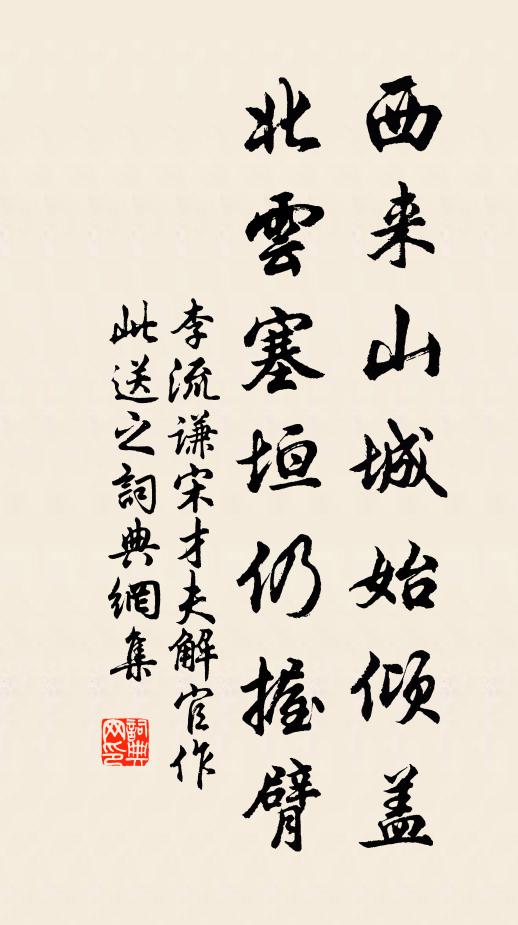 西来山城始倾盖
北雲塞垣仍握臂
李流謙宋才夫解官作
此送之詞典網集
詞典
网印